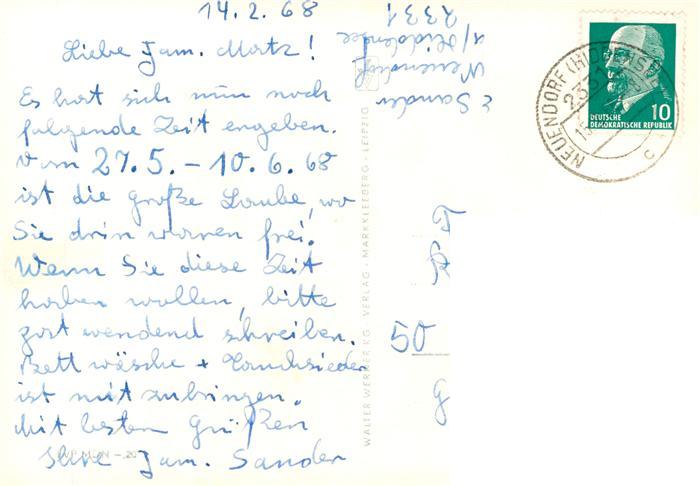 14.2.68
Liebe Fam. Motz!
Es hat sich nun noch
folgende Zeit ergeben.
Vom 27.5. – 10.6.68
ist die große Laube, wo
Sie drin waren frei.
Wenn Sie diese Zeit
haben wollen, bitte
postwendend schreiben.
Bettwäsche + Tauchsieder
ist mitzubringen.
Mit besten Grüßen
Ihre Fam. Sander
Sander
Neuendorf
a/Hiddensee
2331
WALTER WERNER KG · VERLAG · MARKKLEEBERG - LEIPZIG
50
NEUENDORF (HIDDENSEE)
2331
c
10
DEUTSCHE
DEMOKRATISCHE REPUBLIK